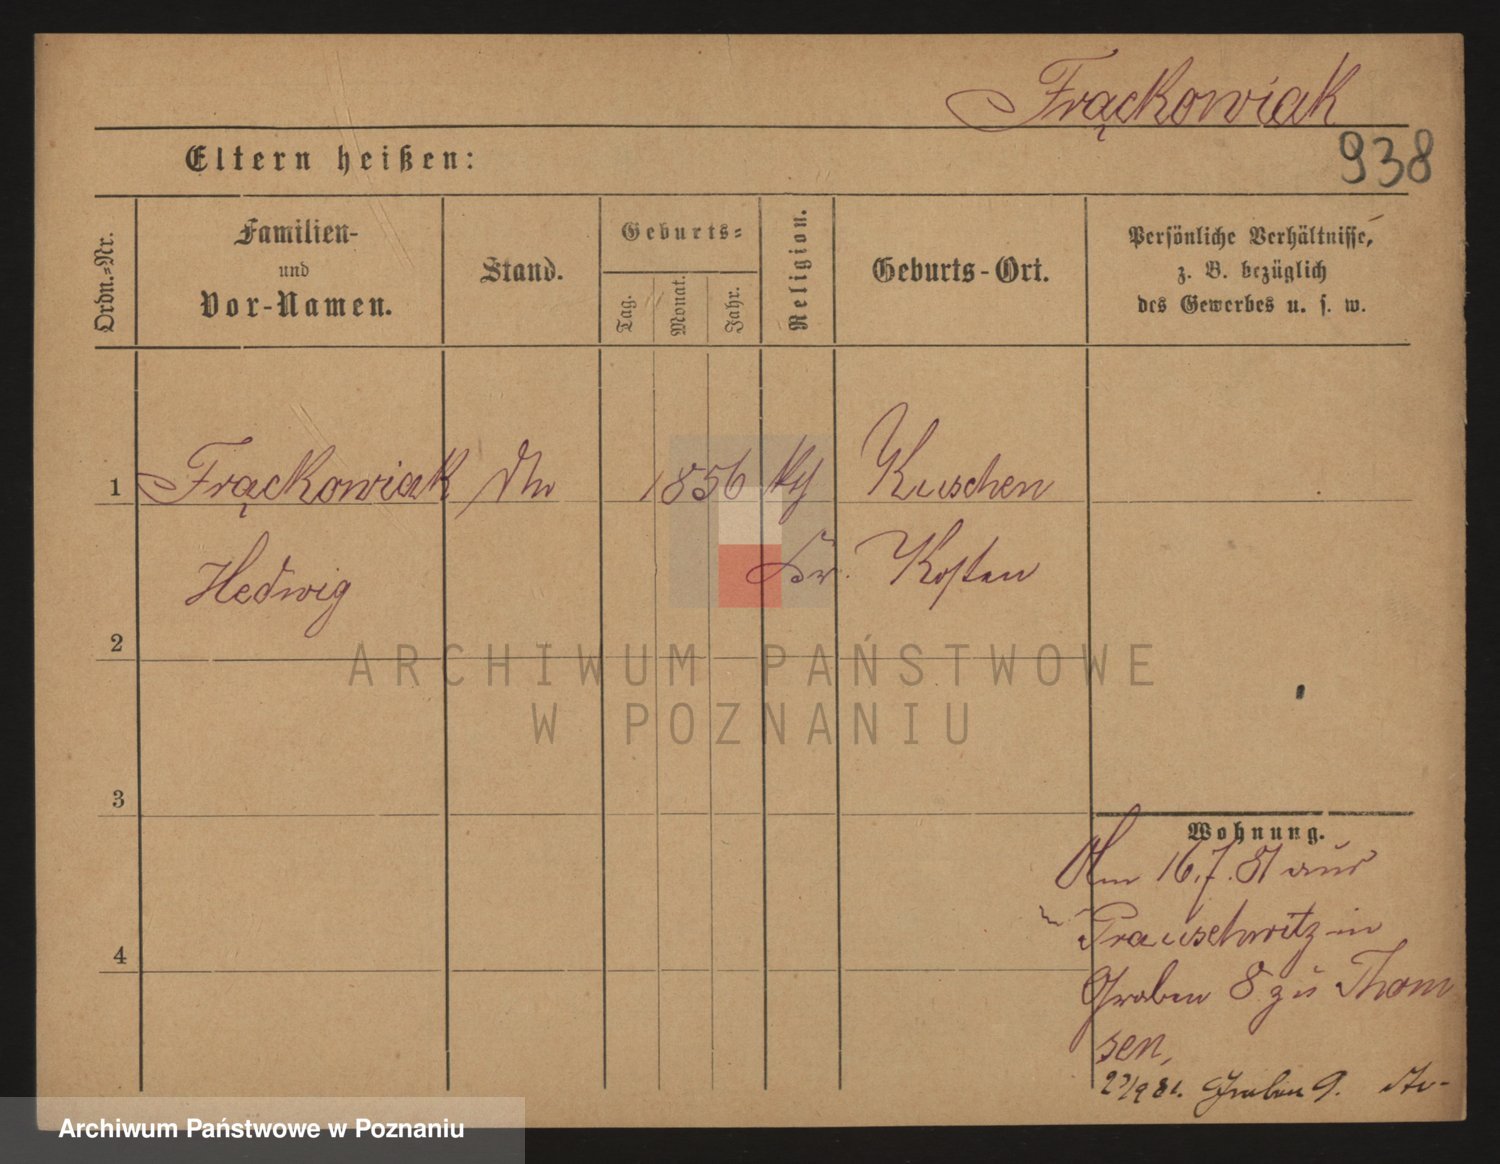 Frąckowiak
938
Eltern heißen:
Ordn.=Nr.
Familien-
und
Vor-Namen.
Stand.
Geburts=
Tag.
Monat.
Jahr.
Religion.
Geburts-Ort.
Persönliche Verhältnisse,
z. B. bezüglich
des Gewerbes u. s. w.
1 Frąckowiak 1856 Kuschen
Hedwig Kr. Kosten
2
ARCHIWUM PAŃSTWOWE
W POZNANIU
3
Wohnung.
Am 16.7.81 aus
Prauschwitz in
Graben 8 zu Thom
sen,
4
Graben 9.
Archiwum Państwowe w Poznaniu